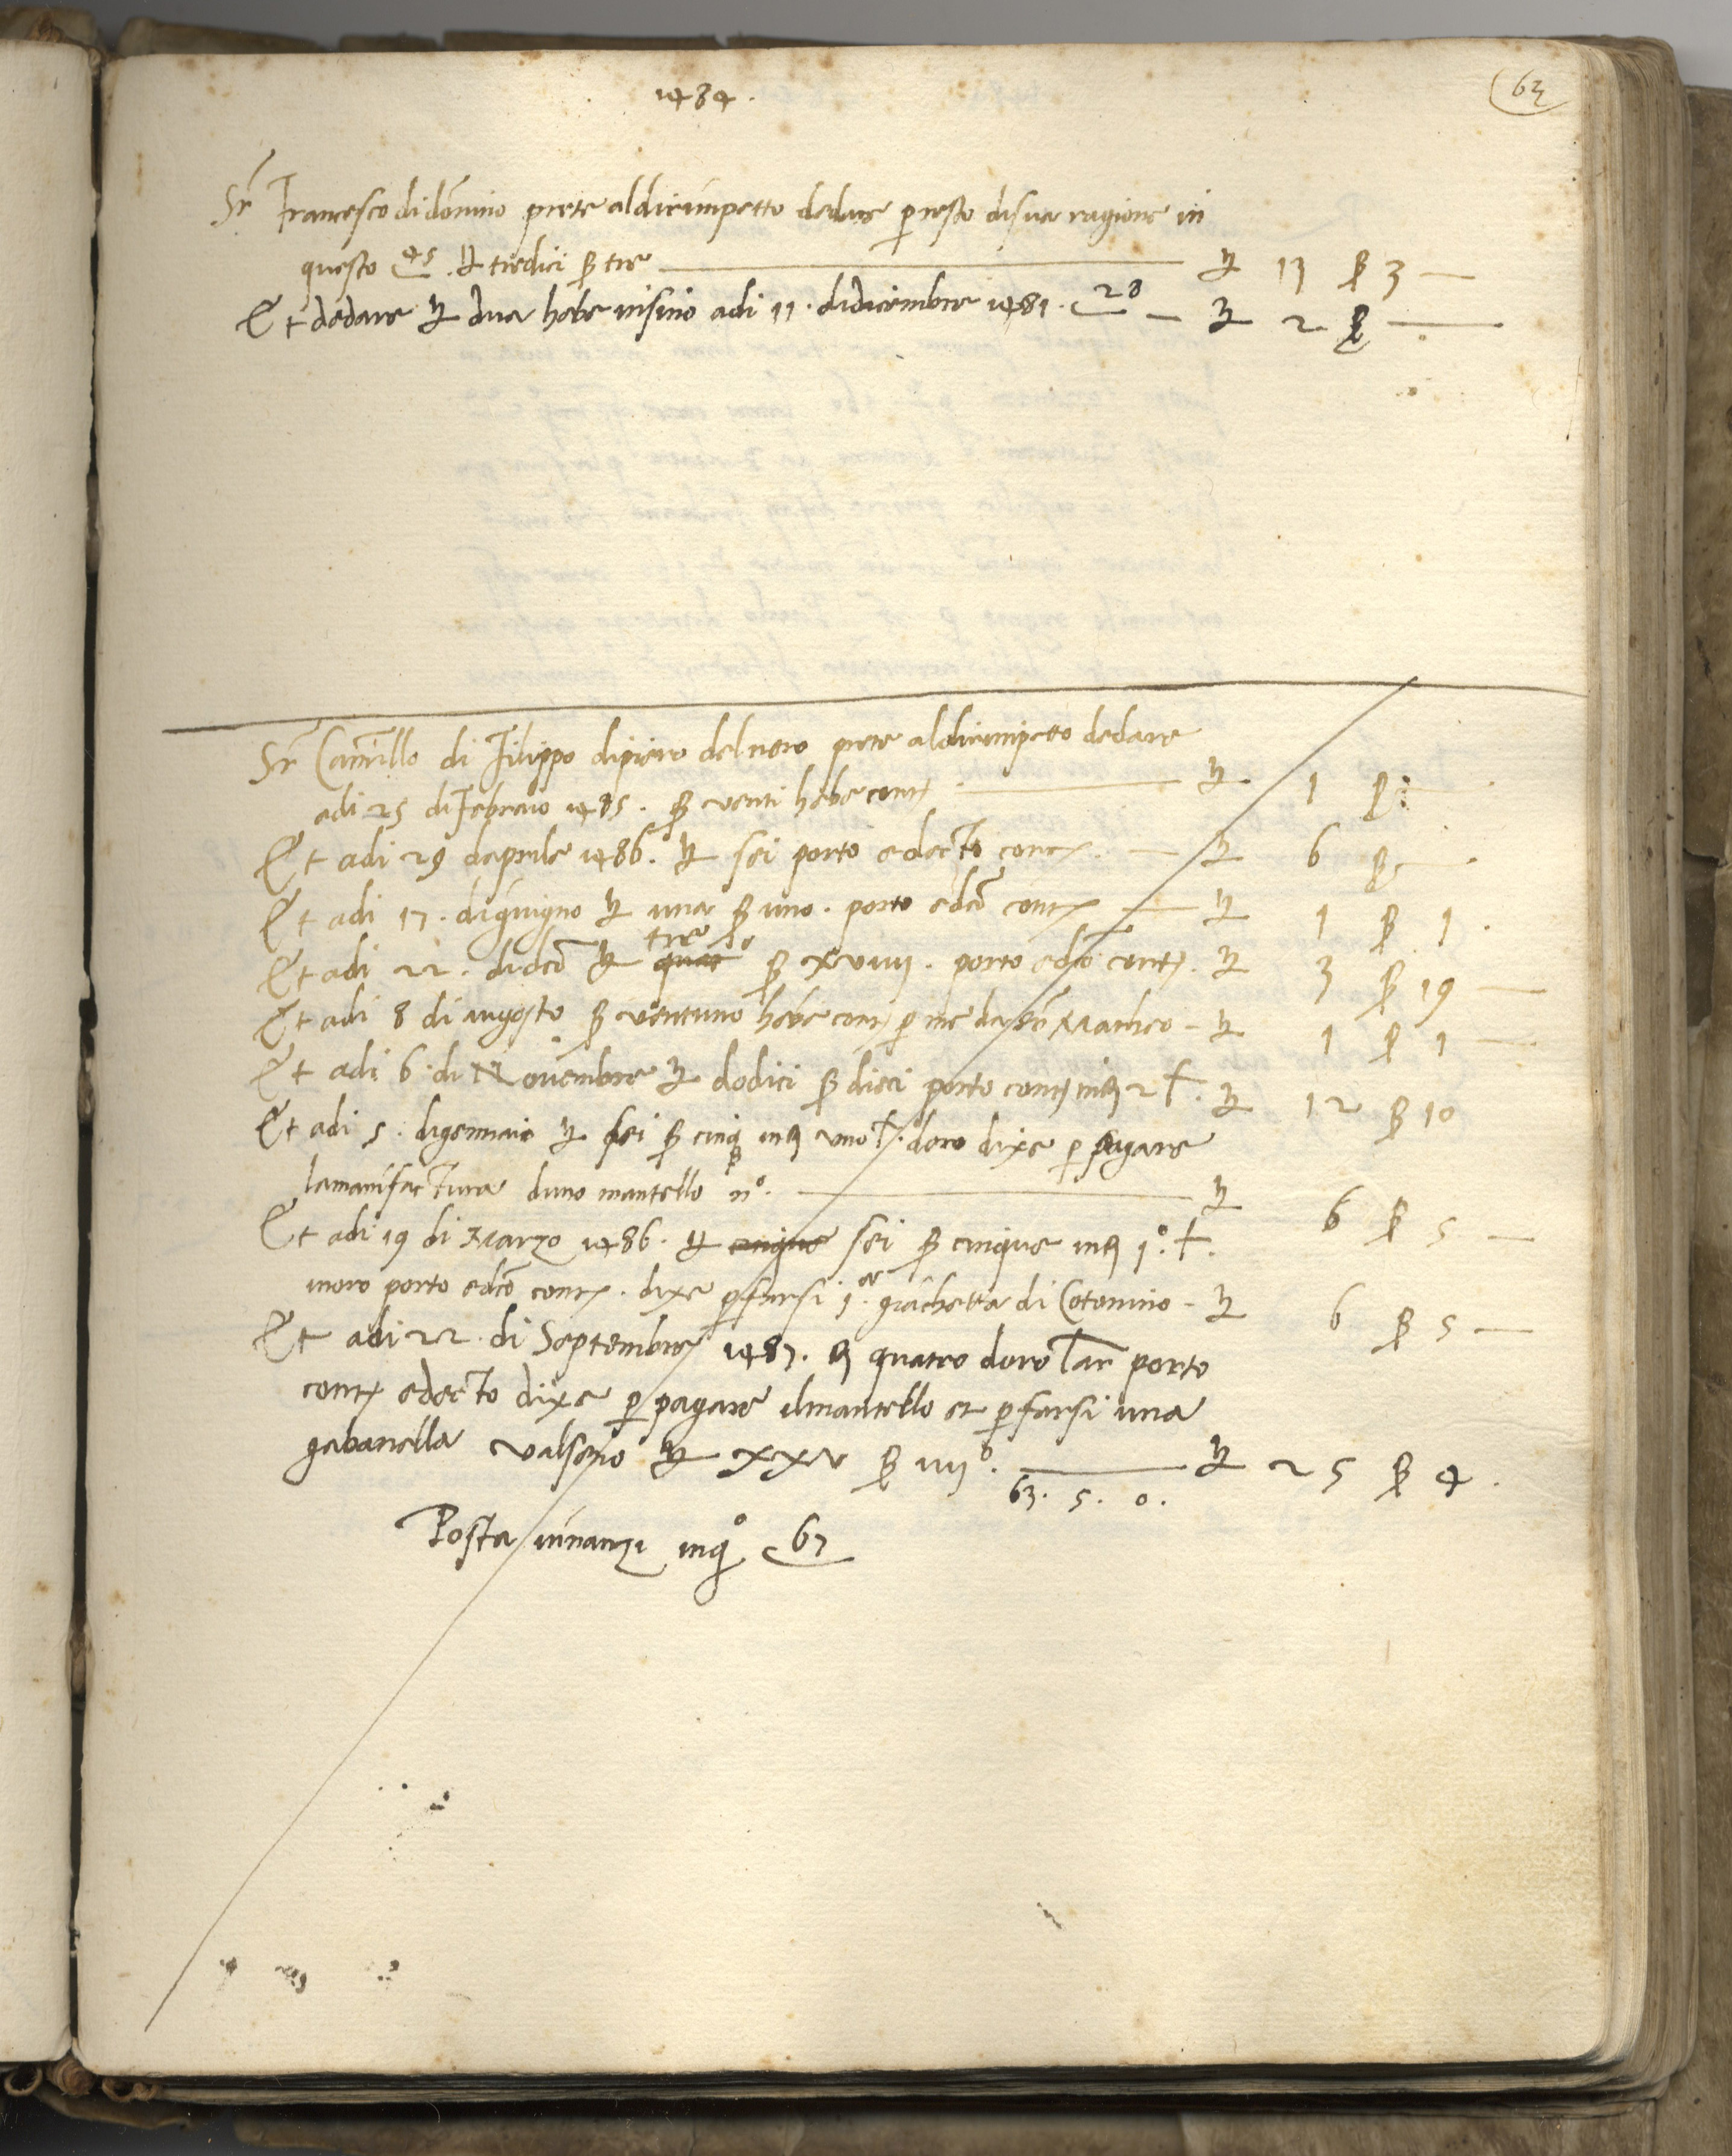 1484.
63
Sr Francesco di dōmino prete aldirimpetto dedare p resto disua ragione in
questo 45. ℔ tredici ꞵ tre ℔ 13 ꞵ 3
Et dedare ℔ dua hebe insino adi 11. didicembre 1481. 28 ℔ 2 ꞵ
Sr Camillo di Filippo dipiero delnero prete aldirimpetto dedare
adi 25 diFebraio 1485. ꞵ venti hebe contj ℔ 1 ꞵ
Et adi 29 daprile 1486. ℔ sei porto edecto contj ℔ 6 ꞵ
Et adi 17. digiugno ℔ una ꞵ uno. porto edco contj ℔ 1 ꞵ 1.
Et adi 22. didco ℔ tre ꞵ xviiij. porto edco contj. ℔ 3 ꞵ 19
Et adi 8 di augosto ꞵ ventuno hebe contj p me da Matheo ℔ 1 ꞵ 1
Et adi 6. di Novembre ℔ dodici ꞵ dieci porto contj in 2 ℔ 12 ꞵ 10
Et adi 5. digennaio ℔ sei ꞵ cinq in uno doro dixe p pagare
lamanifactura duno mantello n°. ℔ 6 ꞵ 5
Et adi 19 di Marzo 1486. ℔ cinque sei ꞵ cinque in 1°.
inoro porto edco contj. dixe p farsi 1.a giachetta di Cotonino ℔ 6 ꞵ 5
Et adi 22. di Septembre 1487. quatro doro lar porto
contj edecto dixe p pagare ilmantello et p farsi una
gabanella valseno ℔ xxv ꞵ iiijo. ℔ 25 ꞵ 4.
63. 5. 0.
Posta innanzi inqo 67